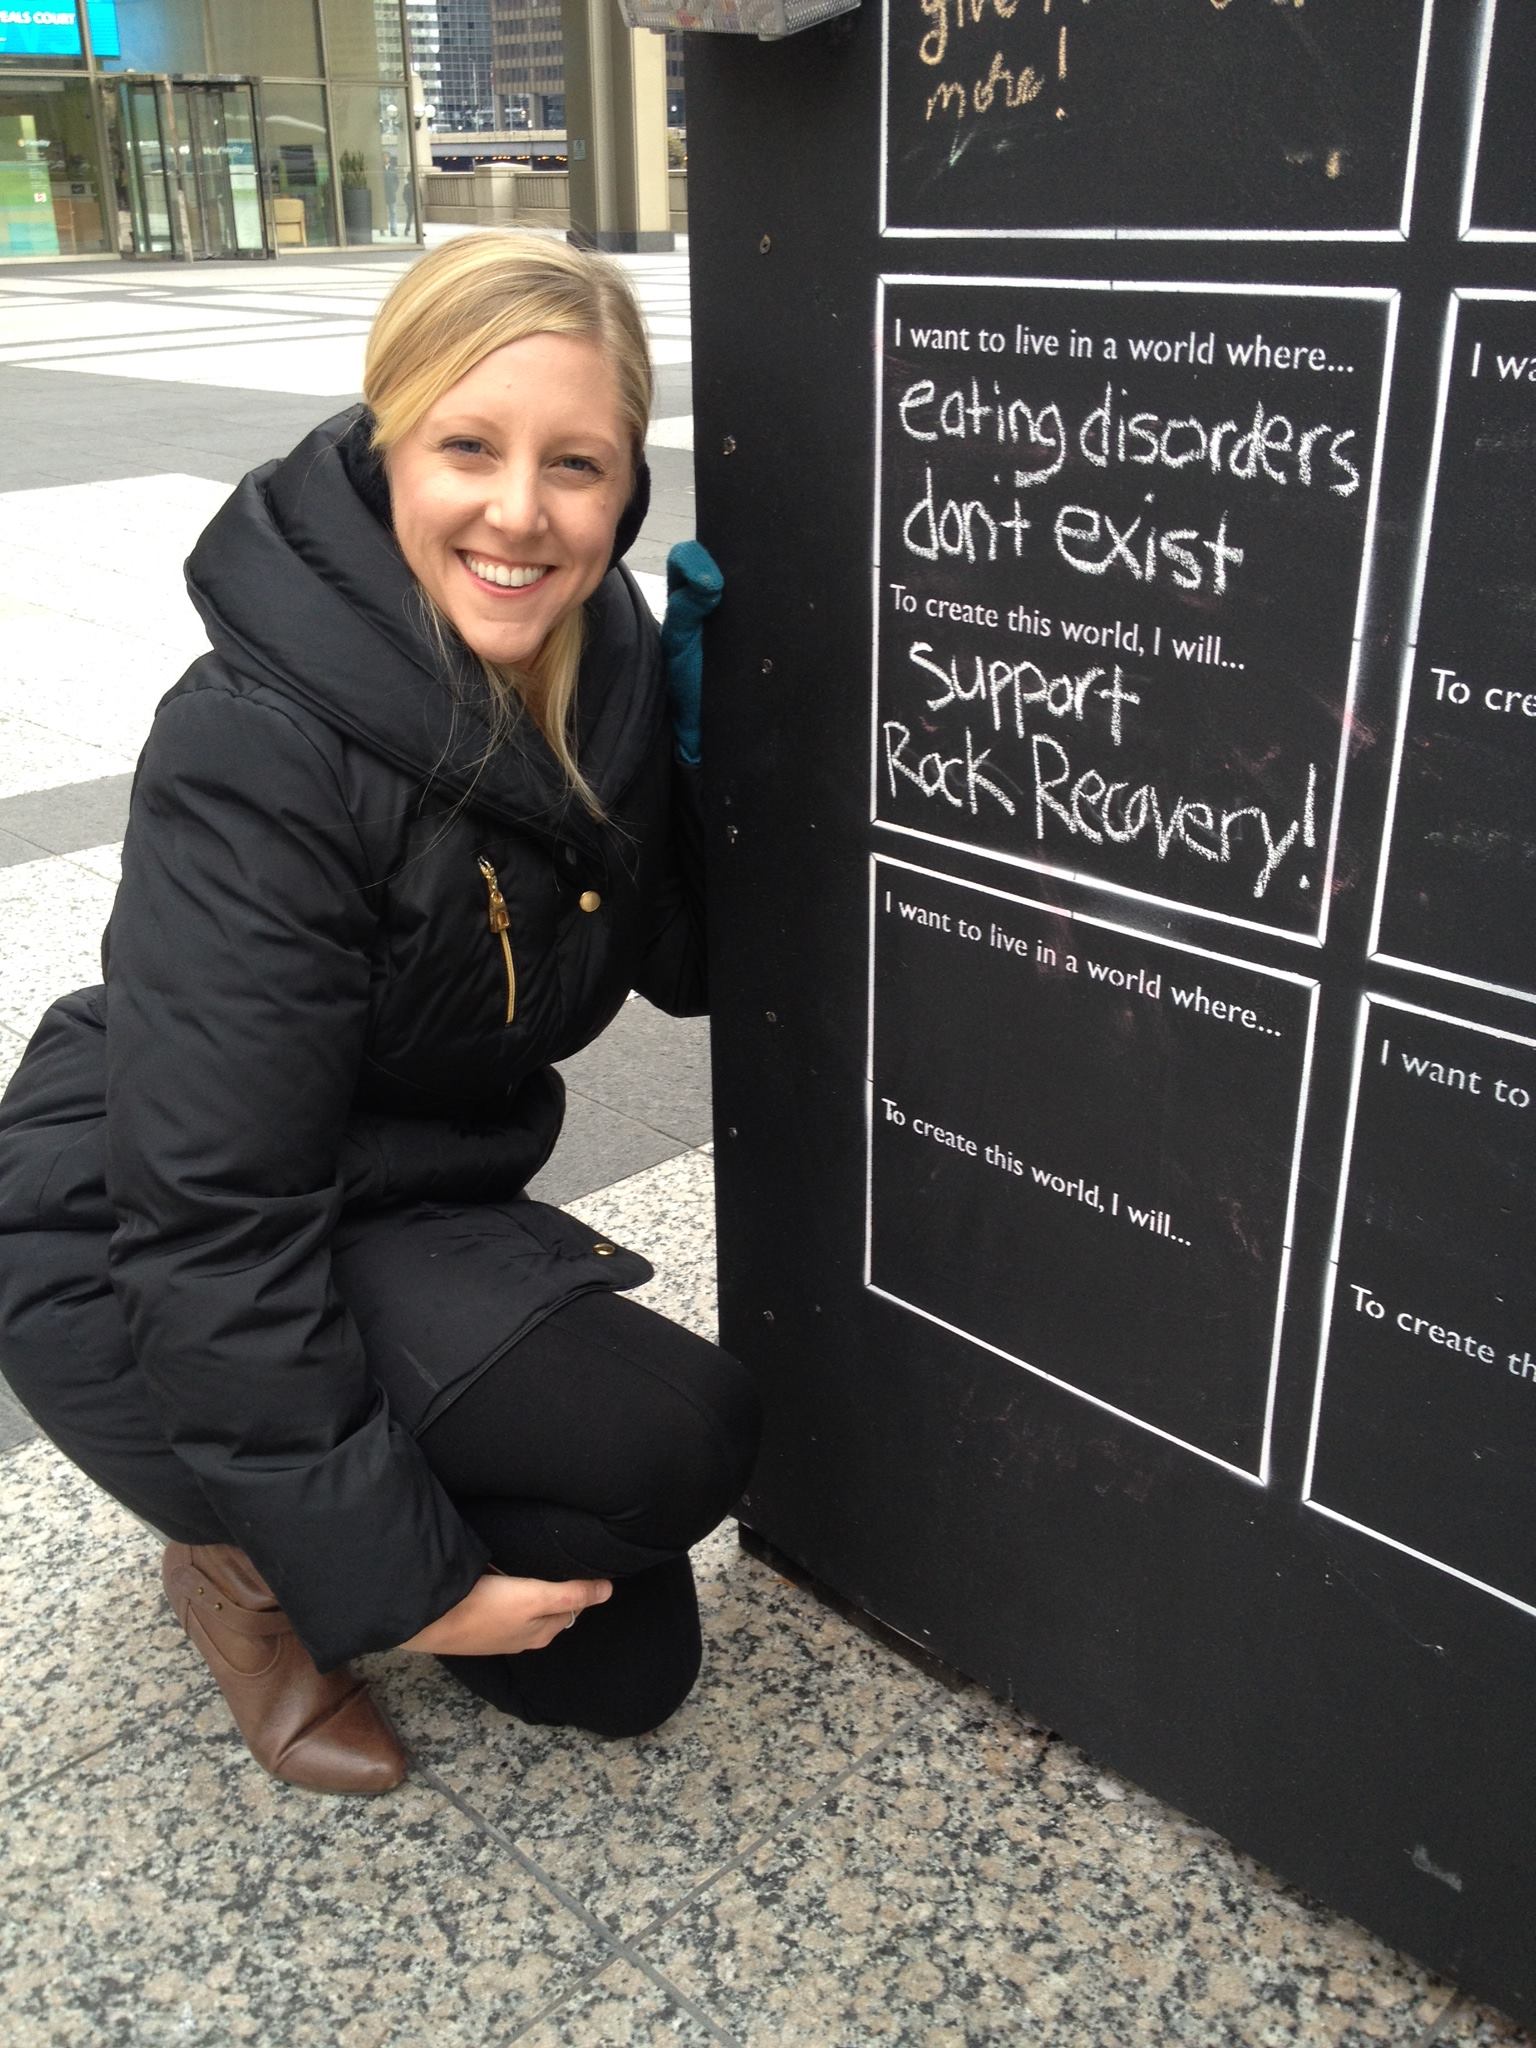 EALS COURT
Fidelity
give
more!
I want to live in a world where...
eating disorders
don't exist
To create this world, I will...
Support
Rock Recovery!
I want to live in a world where...
To create this world, I will...
I wa
To cre
I want to
To create th